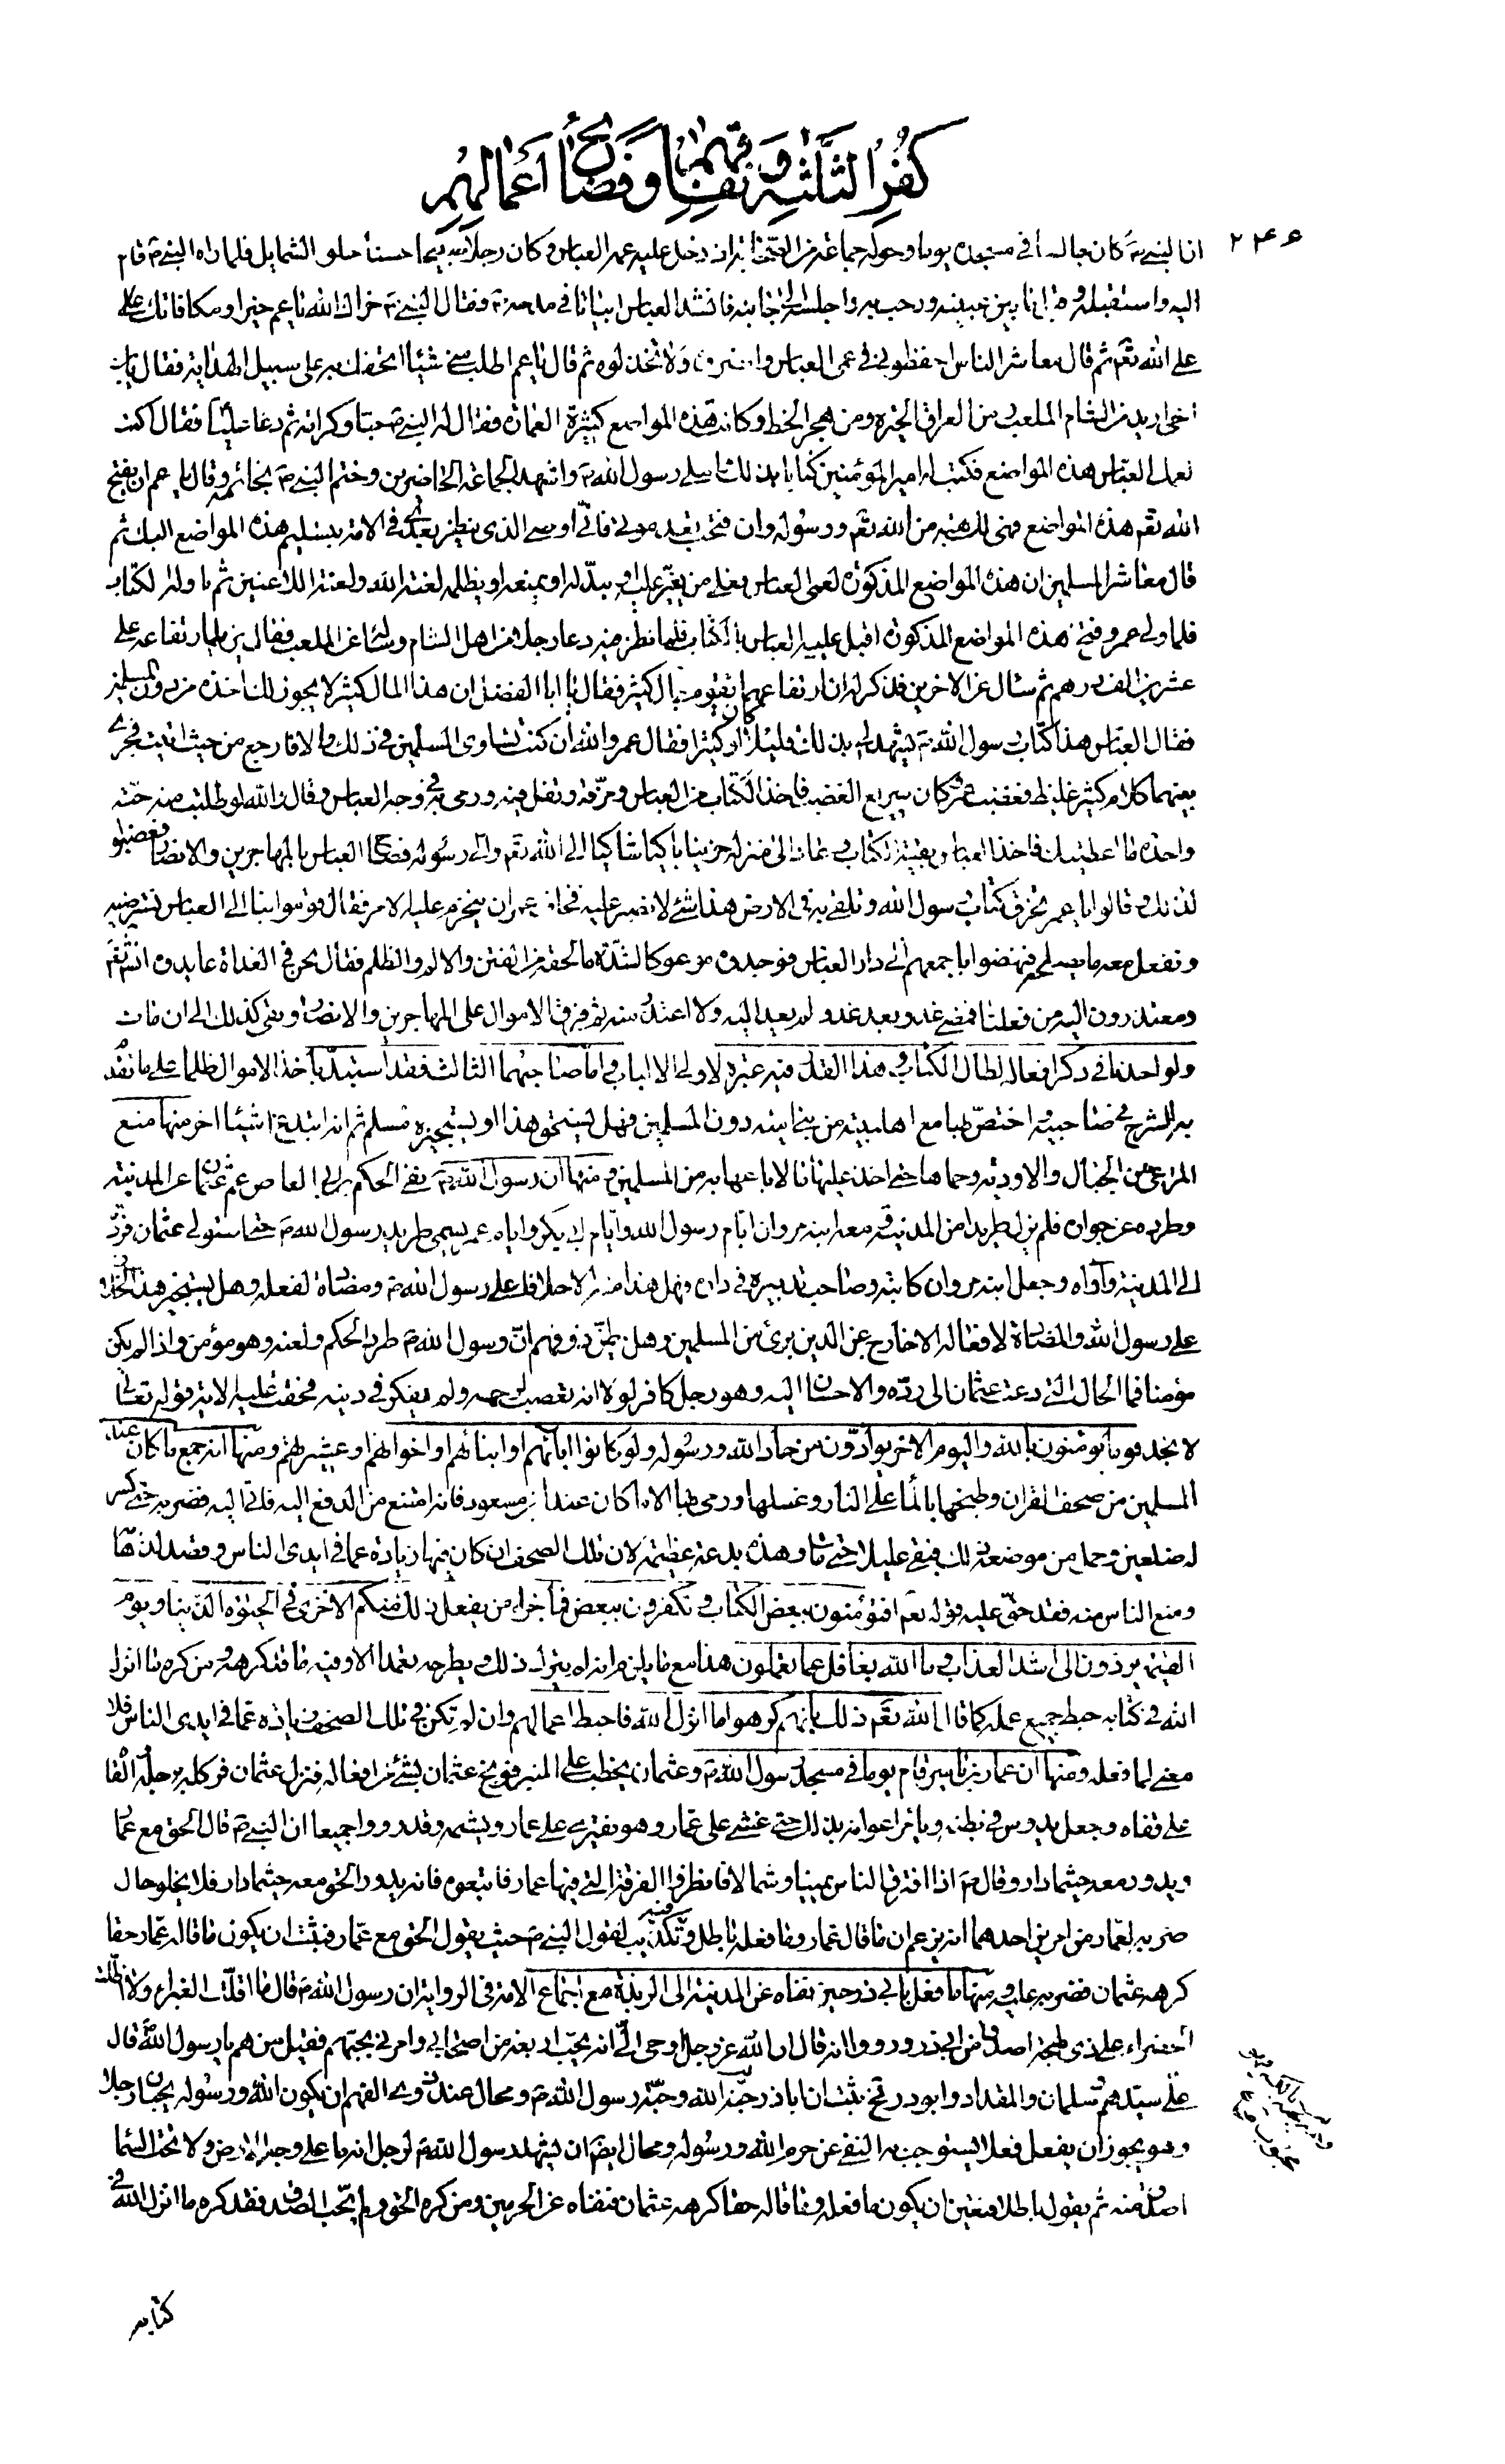 كفر الثلثة ونفاقهم وفضائح أعمالهم
٢٤٤
ان النبي ص كان جالسا في مسجده يوما وحوله جماعة من الصحابة اذ دخل عليه عمه العباس وكان رجلا حسنا حلو الشمايل فلما راه النبي ص قام
اليه واستقبله وقبل ما بين عينيه ورحب به واجلسه الى جانبه فانشد العباس ابياتا في مدحه ص فقال النبي ص جزاك الله يا عم خيرا ومكافاتك على
على الله تعم ثم قال معاشر الناس احفظوني في عمي العباس وانصروه ولا تخذلوه ثم قال يا عم اطلب مني شيئا اتحفك به على سبيل الهداية فقال يابن
اخي اريد من الشام الملعب ومن العراق الحيرة ومن هجر الخط وكانت هذه المواضع كثيرة العمارة فقال له النبي ص حبا وكرامة ثم دعا عليا فقال اكتب
لعمك العباس هذه المواضع فكتب له امير المؤمنين كتابا بذلك رسول الله ص واشهد الجماعة الحاضرين وختم النبي ص بخاتمه وقال يا عم ان يفتح
الله تعم هذه المواضع فهي لك هبة من الله تعم ورسوله وان فتحت بعد موتي فاني اوصي الذي ينظر بعدي في الامة بتسليم هذه المواضع اليك ثم
قال معاشر المسلمين ان هذه المواضع المذكورة لعمي العباس فعلى من يغير عليه او يبدله او يمنعه او يظلمه لعنة الله ولعنة اللاعنين ثم ناوله الكتاب
فلما ولي عمر وفتح هذه المواضع المذكورة اقبل عليه العباس بالكتاب فلما نظر فيه دعا رجلا من اهل الشام وسئله عن الملعب فقال يزيد ارتفاعه على
عشرين الف درهم ثم سئال عن الاخرين فذكر له ان ارتفاعهما يقوم بمال كثير فقال يا ابا الفضل ان هذا المال كثير لا يجوز لك اخذه من دون المسلمين
فقال العباس هذا كتاب رسول الله ص يشهد لي بذلك قليلا كان او كثيرا فقال عمر والله ان كنت تساوي المسلمين في ذلك والا فارجع من حيث اتيت فجرى
بينهما كلام كثير غليظ فغضب عمر وكان سريع الغضب فاخذ الكتاب من العباس ومزقه وتفل فيه ورمى به في وجه العباس وقال والله لو طلبت منه حبة
واحدة ما اعطيتك فاخذ العباس بقية الكتاب وعاد الى منزله حزينا باكيا شاكيا الى الله تعم والى رسوله فصاح العباس بالمهاجرين والانصار فغضبوا
لذلك وقالوا يا عمر تخرق كتاب رسول الله وتلقي به في الارض هذا شيء لا نصبر عليه فخاف عمر ان ينخرم عليه الامر فقال قوموا بنا الى العباس نسترضيه
ونفعل معه ما يصلحه فنهضوا باجمعهم الى دار العباس فوجدوه موعوكا لشدة ما لحقه من الفتن والالم والظلم فقال نحن في الغداة عايدوه انشاء الله تعم
ومعتذرون اليه من فعلنا فمضى غد وبعد غد ولم يعد اليه ولا اعتذر منه ثم فرق الاموال على المهاجرين والانصار وبقي كذلك الى ان مات
ولو اخذنا في ذكر افعاله لطال الكتاب وفي هذا القدر فيه عبرة لاولي الالباب واما صاحبهما الثالث فقد استبد باخذ الاموال ظلما على ما تقدم
به الشرح في صاحبيه واختص بها مع اهل بيته من بني امية دون المسلمين فهل يستحق هذا او يستجيزه مسلم ثم انه ابتدع اشياء اخر منها منع
المراعي من الجبال والاودية وحماها حتى اخذ عليها مالا باعها به من المسلمين ومنها ان رسول الله ص نفى الحكم بن ابي العاص عم عثمان عن المدينة
وطرده عن جواره فلم يزل طريدا من المدينة ومعه ابنه مروان ايام رسول الله وايام ابي بكر وايام عمر يسمى طريد رسول الله ص حتى استولى عثمان فرده
الى المدينة وآواه وجعل ابنه مروان كاتبه وصاحب تدبيره في داره فهل هذا منه الا خلاف على رسول الله ص ومضادة لفعله وهل يستجيز هذا الخلاف
على رسول الله والمضادة لافعاله الا خارج عن الدين بريء من المسلمين وهل يظن ذو فهم ان رسول الله ص طرد الحكم ولعنه وهو مؤمن واذا لم يكن
مؤمنا فما الحال التي دعت عثمان الى رده والاحسان اليه وهو رجل كافر لولا انه تعصب لرحمه ولم يفكر في دينه فحقت عليه الاية قوله تعالى
لا تجد قوما يؤمنون بالله واليوم الاخر يوادون من حاد الله ورسوله ولو كانوا اباءهم او ابنائهم او اخوانهم او عشيرتهم ومنها انه جمع ما كان عند
المسلمين من صحف القران وطبخها بالماء على النار وغسلها ورمى بها الا ما كان عند ابن مسعود فانه امتنع من الدفع اليه فاتى اليه فضربه حتى كسر
له ضلعين وحمل من موضعه ذلك فبقي عليلا حتى مات وهذه بدعة عظيمة لان تلك الصحف ان كان فيها زيادة عما في ايدي الناس وقصد لذهابها
ومنع الناس منه فقد حق عليه قوله تعم افتؤمنون ببعض الكتاب وتكفرون ببعض فما جزاء من يفعل ذلك منكم الا خزي في الحيوة الدنيا ويوم
القيمة يردون الى اشد العذاب وما الله بغافل عما تعملون هذا مع ما يلزم انه لم يترك ذلك ويطرحه تعمدا الا وفيه ما قد كرهه ومن كره ما انزل
الله في كتابه حبط جميع عمله كما قال الله تعم ذلك بانهم كرهوا ما انزل الله فاحبط اعمالهم وان لم تكن في تلك الصحف زيادة عما في ايدي الناس فلا
معنى لما فعله ومنها ان عمار بن ياسر قام يوما في مسجد رسول الله ص وعثمان يخطب على المنبر فوبخ عثمان بشيء من افعاله فنزل عثمان فركله برجله والقاه
على قفاه وجعل يدوس في بطنه ويامر اعوانه بذلك حتى غشي على عمار وهو يفتري على عمار ويشتمه وقد رووا جميعا ان النبي ص قال الحق مع عمار
يدور معه حيثما دار وقال ص اذا افترق الناس يمينا وشمالا فانظروا الفرقة التي فيها عمار فاتبعوه فانه يدور الحق معه حيثما دار فلا يخلو حال
ضربه لعمار من امرين احدهما انه يزعم ان ما قال عمار وما فعله باطل وفيه تكذيب لقول النبي ص حيث يقول الحق مع عمار فثبت ان يكون ما قاله عمار حقا
كرهه عثمان فضربه عليه ومنها ما فعل بابي ذر حين نفاه عن المدينة الى الربذة مع اجماع الامة في الرواية ان رسول الله ص قال ما اقلت الغبراء ولا اظلت
الخضراء على ذي لهجة اصدق من ابي ذر ورووا انه قال ان الله عز وجل اوحى الي انه يحب اربعة من اصحابي وامرني بحبهم فقيل من هم يا رسول الله قال
علي سيدهم وسلمان والمقداد وابوذر فحينئذ ثبت ان اباذر حبه الله وحبه رسول الله ص ومحال عند ذوي الفهم ان يكون الله ورسوله يحبان رجلا
وهو يجوز ان يفعل فعلا يستوجب به النفي عن حرم الله ورسوله ومحال ايضا ان يشهد رسول الله ص لرجل انه ما على وجه الارض ولا تحت السماء
اصدق منه ثم يقول باطلا فتعين ان يكون ما فعله وما قاله حقا كرهه عثمان فنفاه عن الحرمين ومن كره الحق ولم يحب الصدق فقد كره ما انزل الله في
كتابه